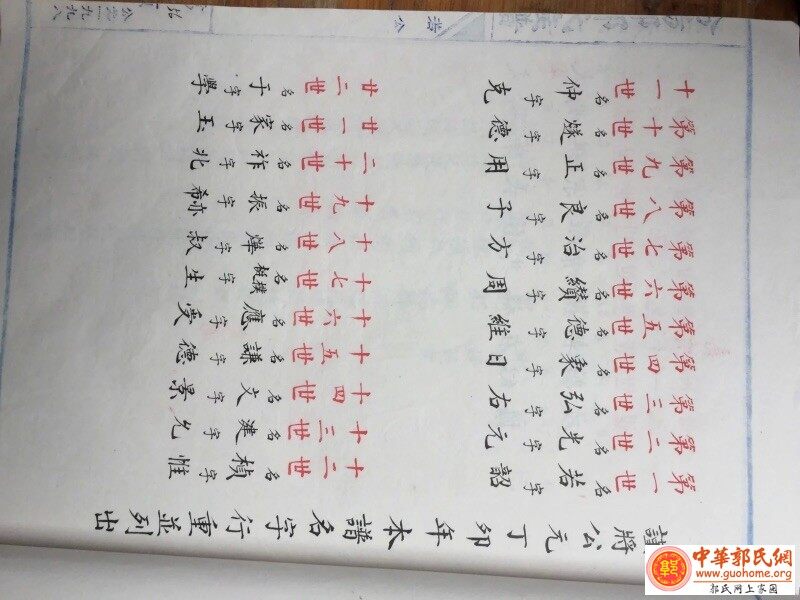 謹將公元丁卯年本譜名字行重並列出
第一世名若字韶
第二世名光字元
第三世名弘字右
第四世名象字日
第五世名德字維
第六世名纘字周
第七世名治字方
第八世名良字子
第九世名正字用
第十世名燧字德
十一世名仲字克
十二世名楨字惟
十三世名建字允
十四世名文字景
十五世名謙字德
十六世名應字受
十七世名樸字生
十八世名燁字叔
十九世名振字亦希
二十世名祚字兆
廿一世名家字玉
廿二世名于字學
中華郭氏網
www.guohome.org
郭氏网上家园